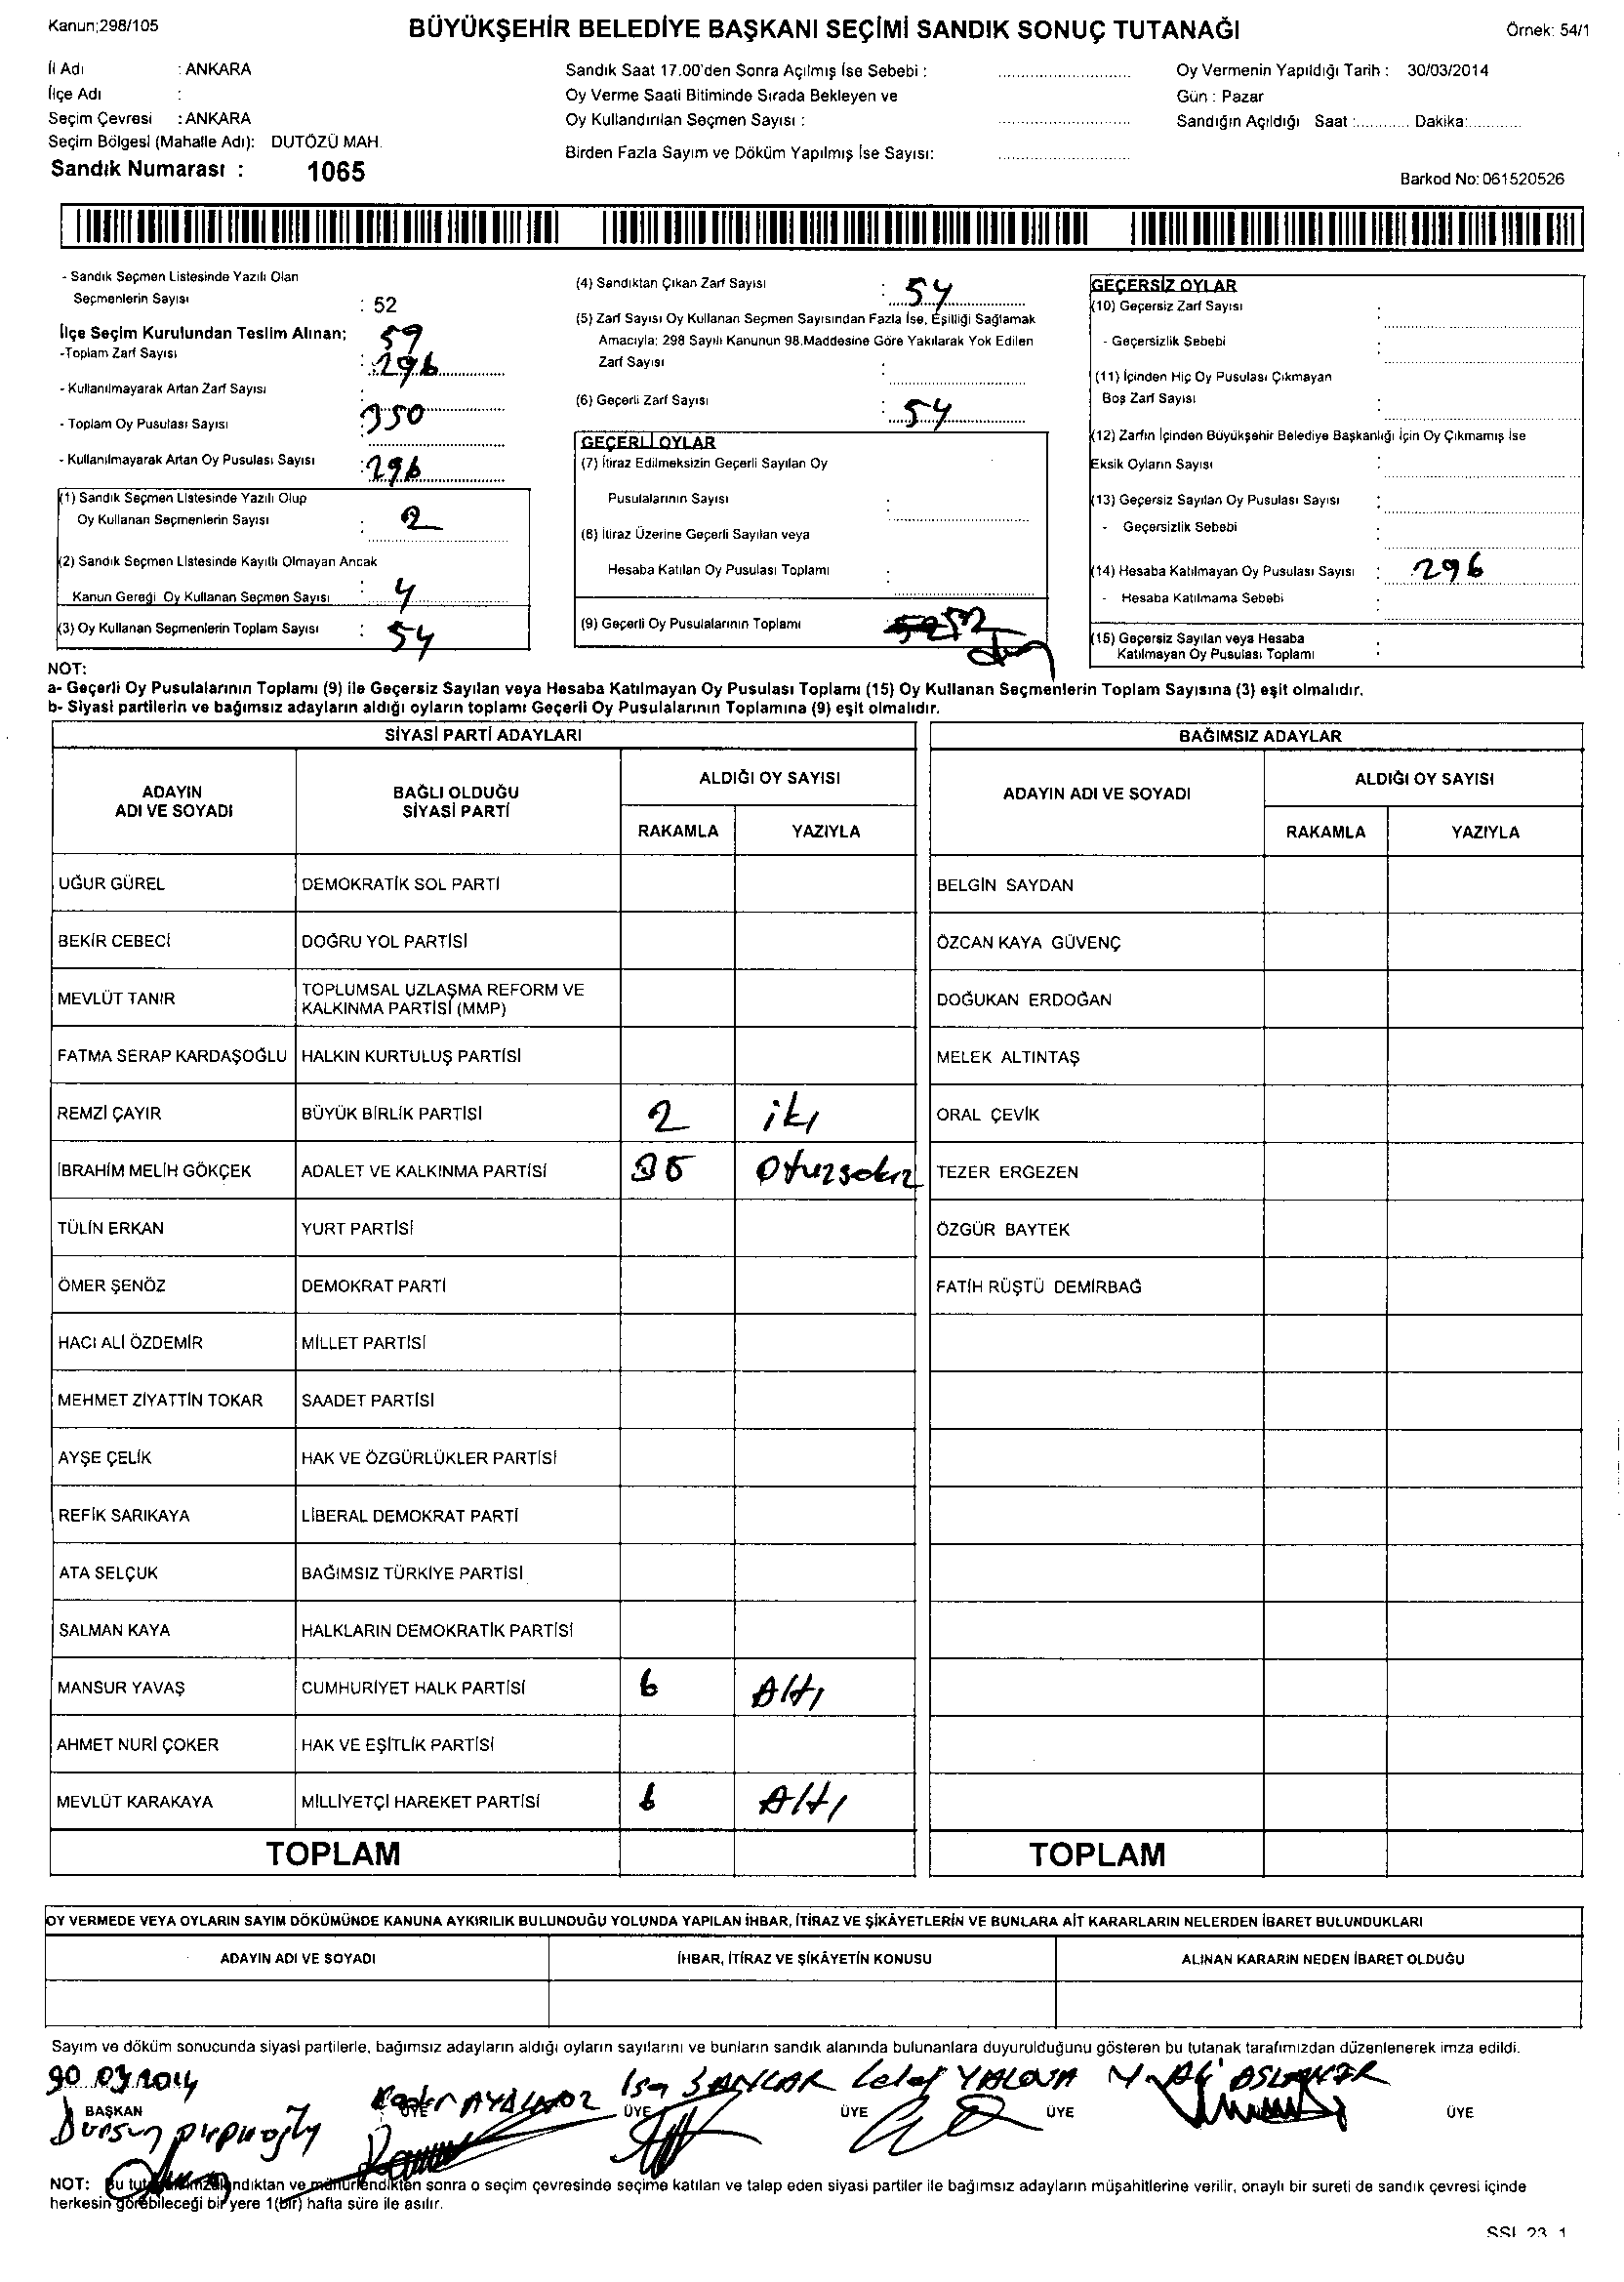 Kanun;298/105
BÜYÜKŞEHİR BELEDİYE BAŞKANI SEÇİMİ SANDIK SONUÇ TUTANAĞI
Örnek: 54/1
İl Adı : ANKARA
İlçe Adı :
Seçim Çevresi : ANKARA
Seçim Bölgesi (Mahalle Adı): DUTÖZÜ MAH.
Sandık Numarası : 1065
Sandık Saat 17.00'den Sonra Açılmış İse Sebebi :
Oy Verme Saati Bitiminde Sırada Bekleyen ve
Oy Kullandırılan Seçmen Sayısı :
Birden Fazla Sayım ve Döküm Yapılmış İse Sayısı:
Oy Vermenin Yapıldığı Tarih : 30/03/2014
Gün : Pazar
Sandığın Açıldığı Saat :............ Dakika:............
Barkod No: 061520526
- Sandık Seçmen Listesinde Yazılı Olan
Seçmenlerin Sayısı : 52
İlçe Seçim Kurulundan Teslim Alınan; 59
-Toplam Zarf Sayısı : 296
- Kullanılmayarak Artan Zarf Sayısı :
- Toplam Oy Pusulası Sayısı : 350
- Kullanılmayarak Artan Oy Pusulası Sayısı : 296
(1) Sandık Seçmen Listesinde Yazılı Olup
Oy Kullanan Seçmenlerin Sayısı : 2
(2) Sandık Seçmen Listesinde Kayıtlı Olmayan Ancak
Kanun Gereği Oy Kullanan Seçmen Sayısı : 4
(3) Oy Kullanan Seçmenlerin Toplam Sayısı : 54
(4) Sandıktan Çıkan Zarf Sayısı : 54
(5) Zarf Sayısı Oy Kullanan Seçmen Sayısından Fazla İse, Eşitliği Sağlamak
Amacıyla; 298 Sayılı Kanunun 98.Maddesine Göre Yakılarak Yok Edilen
Zarf Sayısı :
(6) Geçerli Zarf Sayısı : 54
GEÇERLİ OYLAR
(7) İtiraz Edilmeksizin Geçerli Sayılan Oy
Pusulalarının Sayısı :
(8) İtiraz Üzerine Geçerli Sayılan veya
Hesaba Katılan Oy Pusulası Toplamı :
(9) Geçerli Oy Pusulalarının Toplamı 52
GEÇERSİZ OYLAR
(10) Geçersiz Zarf Sayısı :
- Geçersizlik Sebebi :
(11) İçinden Hiç Oy Pusulası Çıkmayan
Boş Zarf Sayısı :
(12) Zarfın İçinden Büyükşehir Belediye Başkanlığı İçin Oy Çıkmamış İse
Eksik Oyların Sayısı :
(13) Geçersiz Sayılan Oy Pusulası Sayısı :
- Geçersizlik Sebebi :
(14) Hesaba Katılmayan Oy Pusulası Sayısı : 296
- Hesaba Katılmama Sebebi :
(15) Geçersiz Sayılan veya Hesaba
Katılmayan Oy Pusulası Toplamı :
NOT:
a- Geçerli Oy Pusulalarının Toplamı (9) ile Geçersiz Sayılan veya Hesaba Katılmayan Oy Pusulası Toplamı (15) Oy Kullanan Seçmenlerin Toplam Sayısına (3) eşit olmalıdır.
b- Siyasi partilerin ve bağımsız adayların aldığı oyların toplamı Geçerli Oy Pusulalarının Toplamına (9) eşit olmalıdır.
SİYASİ PARTİ ADAYLARI
ADAYIN ADI VE SOYADI
BAĞLI OLDUĞU SİYASİ PARTİ
ALDIĞI OY SAYISI
RAKAMLA YAZIYLA
UĞUR GÜREL DEMOKRATİK SOL PARTİ
BEKİR CEBECİ DOĞRU YOL PARTİSİ
MEVLÜT TANIR TOPLUMSAL UZLAŞMA REFORM VE
KALKINMA PARTİSİ (MMP)
FATMA SERAP KARDAŞOĞLU HALKIN KURTULUŞ PARTİSİ
REMZİ ÇAYIR BÜYÜK BİRLİK PARTİSİ 2 iki
İBRAHİM MELİH GÖKÇEK ADALET VE KALKINMA PARTİSİ 38 Otuzsekiz
TÜLİN ERKAN YURT PARTİSİ
ÖMER ŞENÖZ DEMOKRAT PARTİ
HACI ALİ ÖZDEMİR MİLLET PARTİSİ
MEHMET ZİYATTİN TOKAR SAADET PARTİSİ
AYŞE ÇELİK HAK VE ÖZGÜRLÜKLER PARTİSİ
REFİK SARIKAYA LİBERAL DEMOKRAT PARTİ
ATA SELÇUK BAĞIMSIZ TÜRKİYE PARTİSİ
SALMAN KAYA HALKLARIN DEMOKRATİK PARTİSİ
MANSUR YAVAŞ CUMHURİYET HALK PARTİSİ 6 Altı
AHMET NURİ ÇOKER HAK VE EŞİTLİK PARTİSİ
MEVLÜT KARAKAYA MİLLİYETÇİ HAREKET PARTİSİ 6 Altı
TOPLAM
BAĞIMSIZ ADAYLAR
ADAYIN ADI VE SOYADI
ALDIĞI OY SAYISI
RAKAMLA YAZIYLA
BELGİN SAYDAN
ÖZCAN KAYA GÜVENÇ
DOĞUKAN ERDOĞAN
MELEK ALTINTAŞ
ORAL ÇEVİK
TEZER ERGEZEN
ÖZGÜR BAYTEK
FATİH RÜŞTÜ DEMİRBAĞ
TOPLAM
OY VERMEDE VEYA OYLARIN SAYIM DÖKÜMÜNDE KANUNA AYKIRILIK BULUNDUĞU YOLUNDA YAPILAN İHBAR, İTİRAZ VE ŞİKÂYETLERİN VE BUNLARA AİT KARARLARIN NELERDEN İBARET BULUNDUKLARI
ADAYIN ADI VE SOYADI İHBAR, İTİRAZ VE ŞİKÂYETİN KONUSU ALINAN KARARIN NEDEN İBARET OLDUĞU
Sayım ve döküm sonucunda siyasi partilerle, bağımsız adayların aldığı oyların sayılarını ve bunların sandık alanında bulunanlara duyurulduğunu gösteren bu tutanak tarafımızdan düzenlenerek imza edildi.
30.03.2014
BAŞKAN ÜYE ÜYE ÜYE ÜYE ÜYE
NOT: Bu tutanak imzalandıktan ve mühürlendikten sonra o seçim çevresinde seçime katılan ve talep eden siyasi partiler ile bağımsız adayların müşahitlerine verilir, onaylı bir sureti de sandık çevresi içinde
herkesin görebileceği bir yere 1(bir) hafta süre ile asılır.